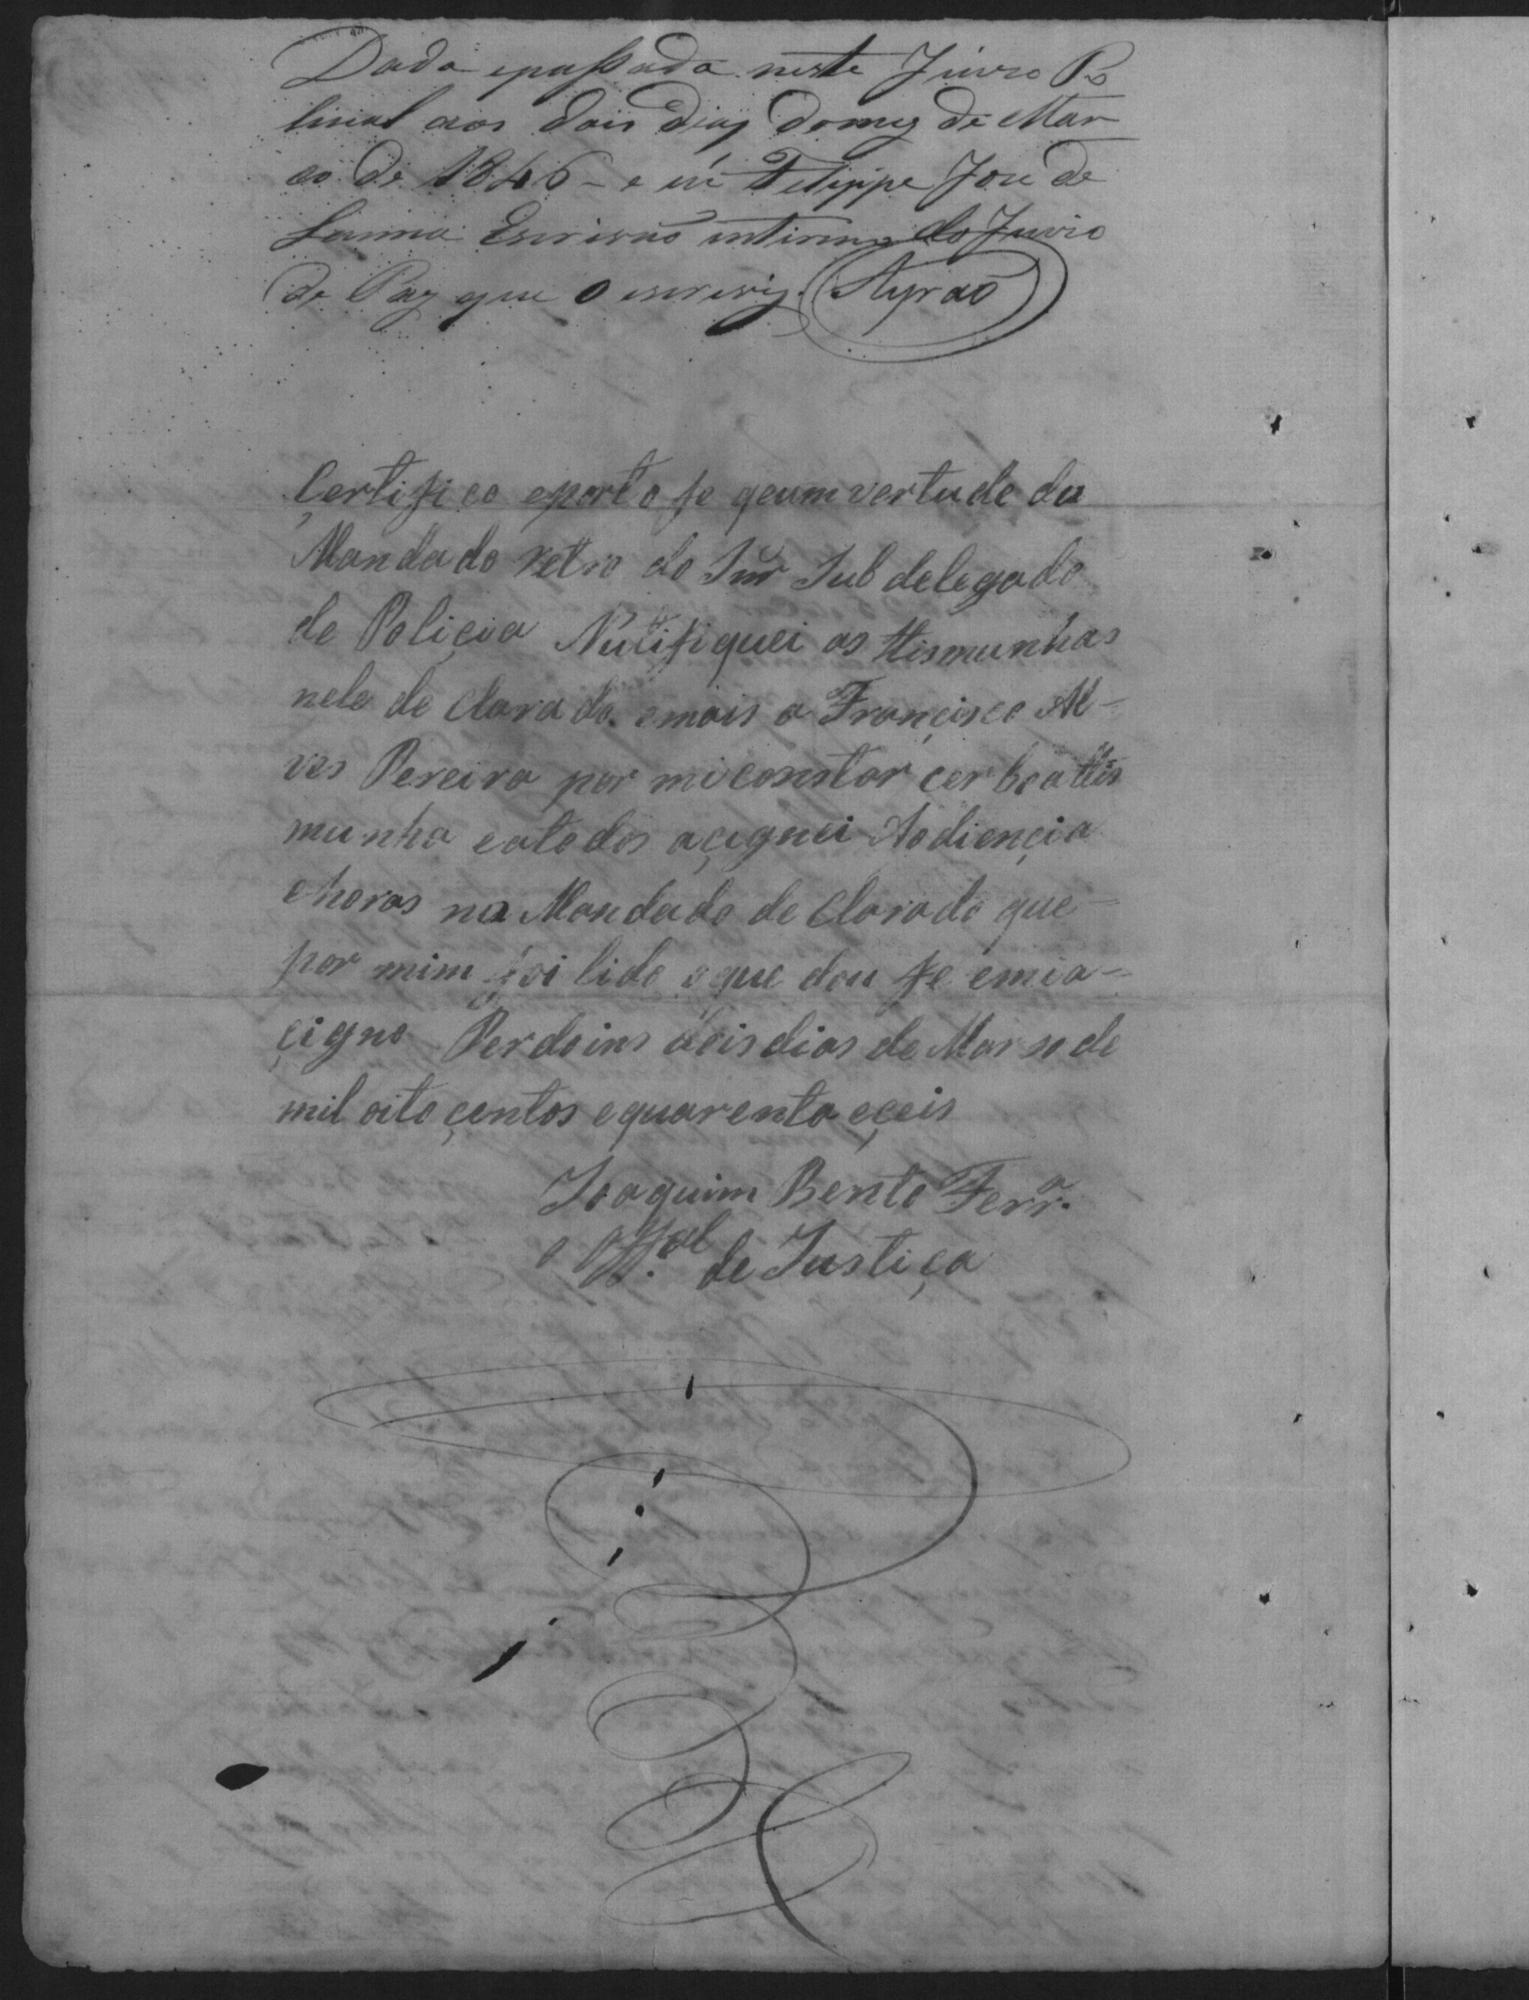 Dada epassada neste Juizo Po
licial aos dois dias do mez de Mar
co de 1846 - e eu Felippe Jose de
Escrivaõ interino do Juizo
de Paz que o escrevi. Ayraõ
Certifico eporto fe qeum vertude du
Mandado retro do Snr Sub delegado
de Poliçia Nutifiquei as ttismunhas
nele de clarado. emais a Françisco Al-
ves Pereira por mi constar çer boa ttis
munha eatodos açignei Aodiençia
ehoras no Mandado de clarado que-
por mim foi lido oque dou fe emia-
çigno Perdoins dois dias de Marso de
mil oito çentos equarenta eçeis
Joaquim Bento Ferrª.
o Offal. de Justiça